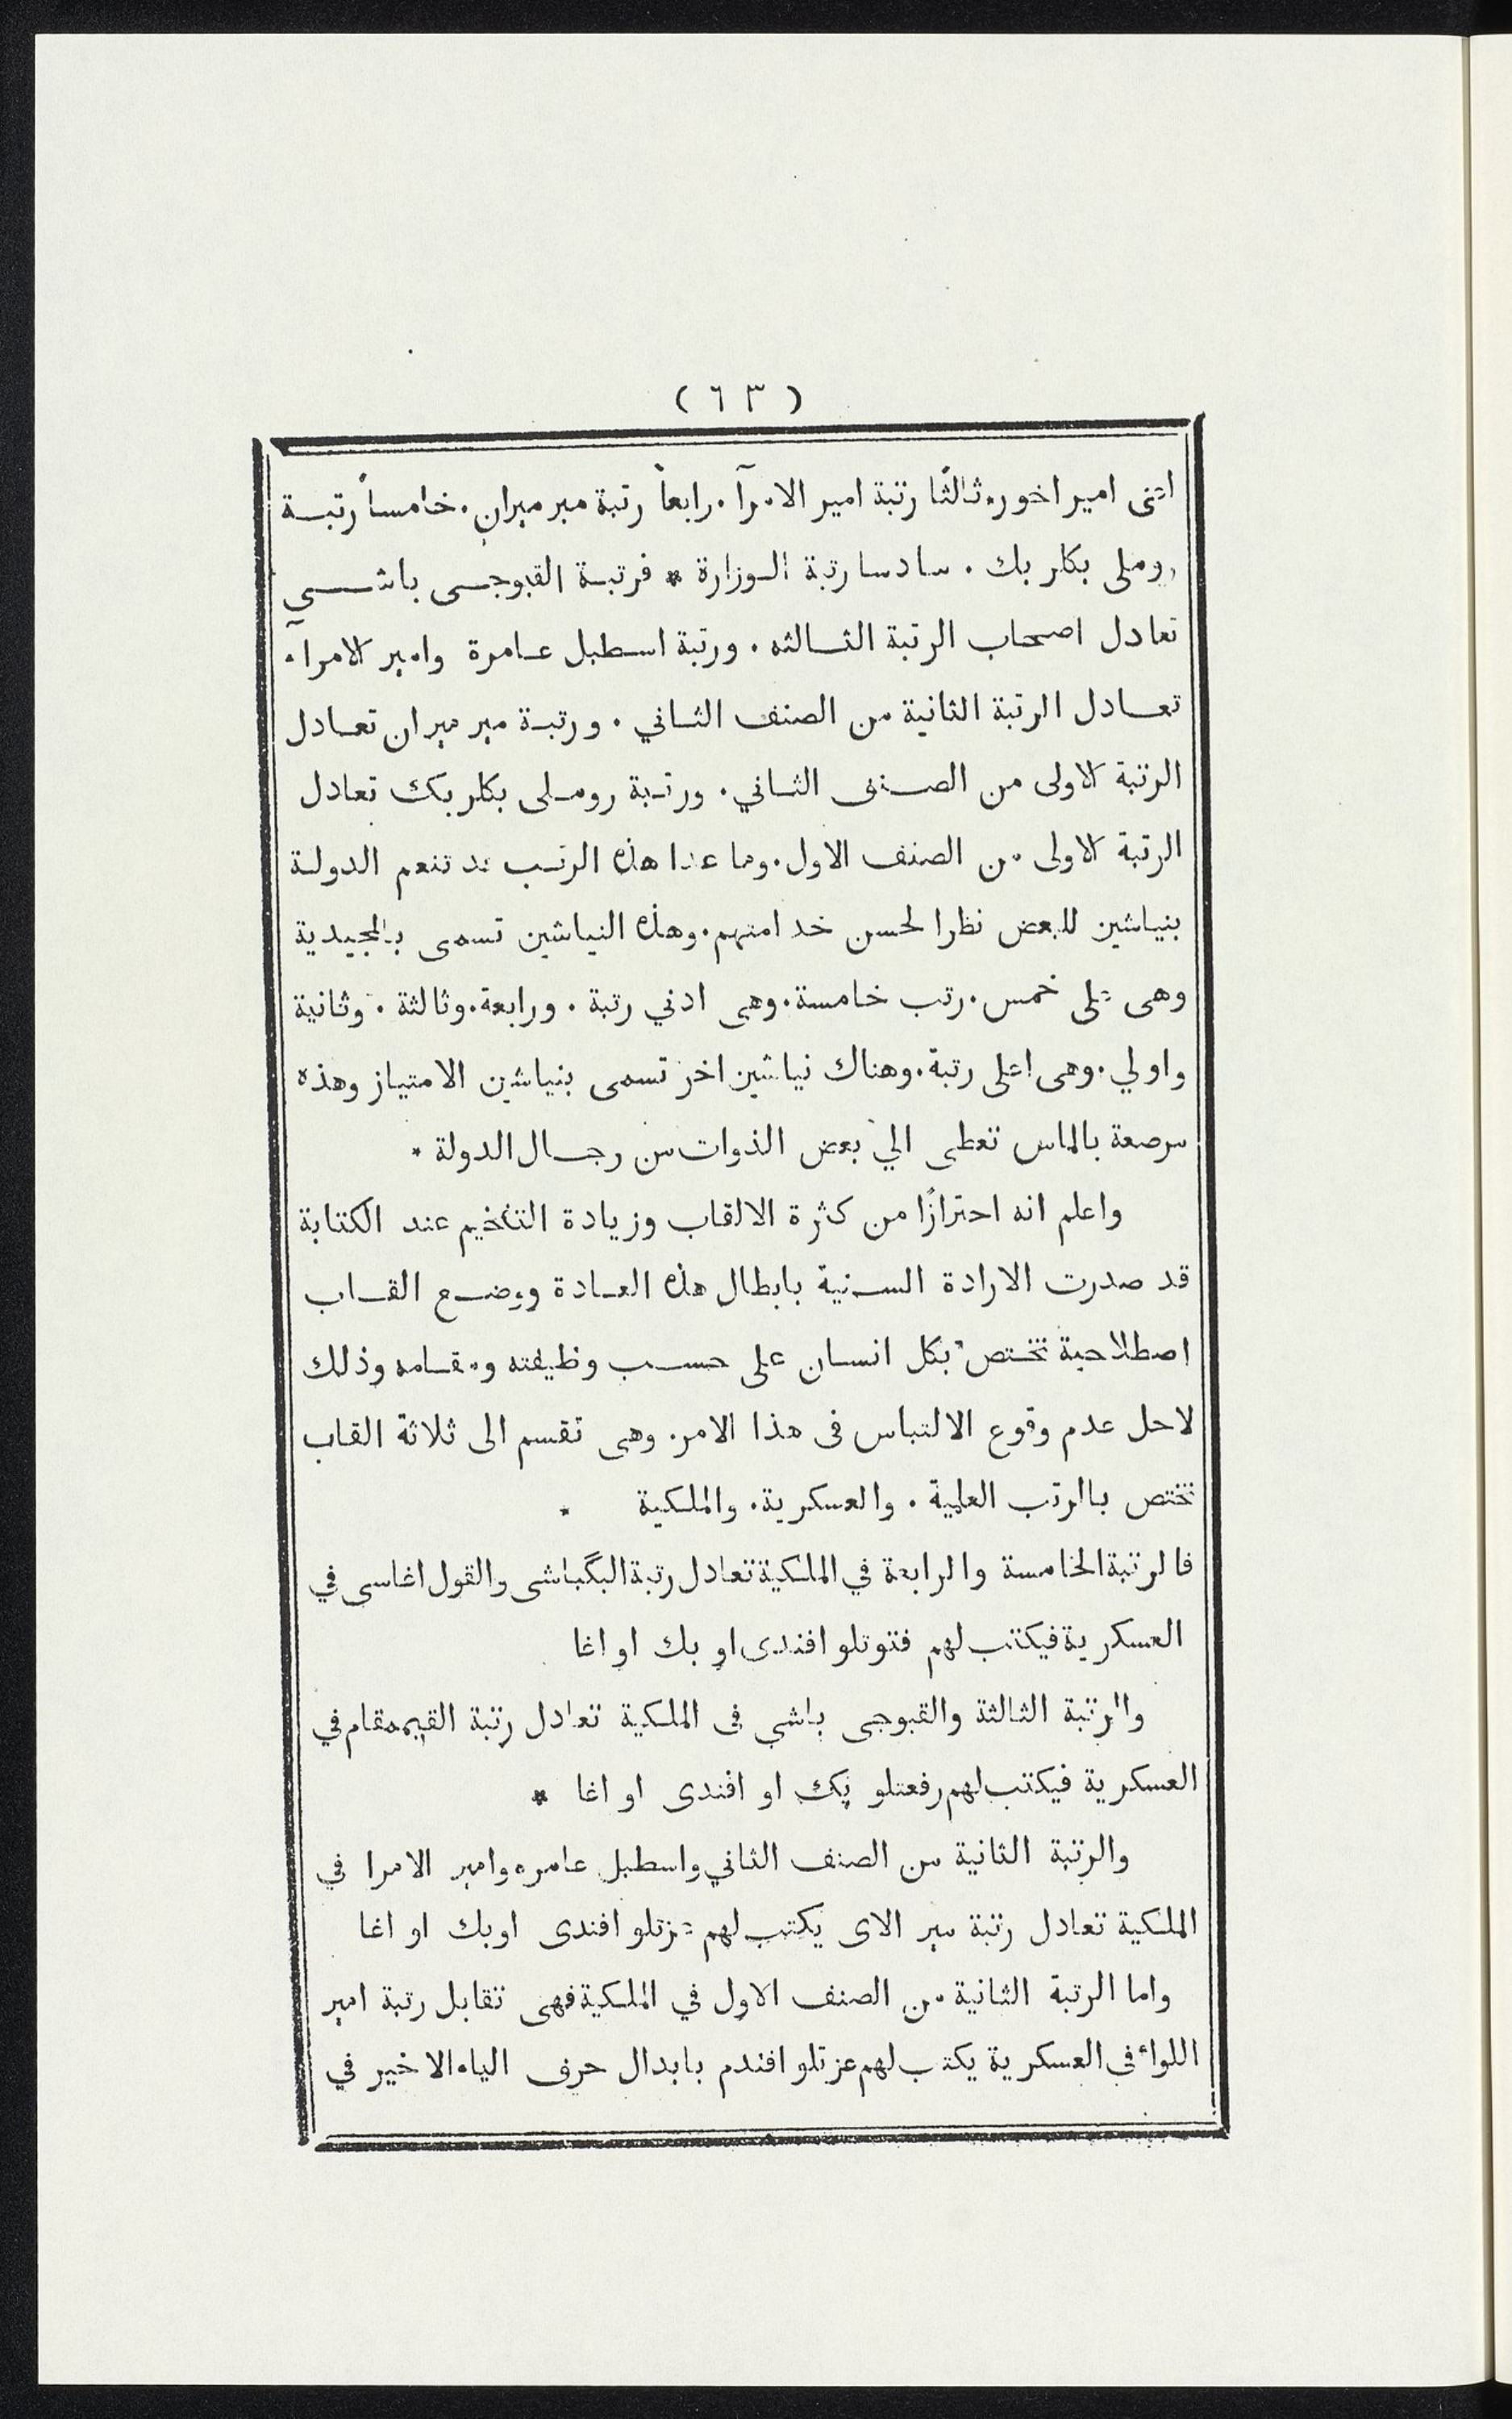 ( ٦٣ )
اتنى امير اخور. ثالثًا رتبة امير الامرآ. رابعاً رتبة ميرميران. خامساً رتبة
روملى بكلر بك. سادسا رتبة الوزارة * فرتبة القبوجى باشي
تعادل اصحاب الرتبة الثالثه. ورتبة اسطبل عامرة وامير الامرآ.
تعادل الرتبة الثانية من الصنف الثاني. ورتبة مير ميران تعادل
الرتبة الاولى من الصنف الثاني. ورتبة روملى بكلر بك تعادل
الرتبة الاولى من الصنف الاول. وما عدا هذه الرتب قد تنعم الدولة
بنياشين للبعض نظرا لحسن خدامتهم. وهذه النياشين تسمى بالمجيدية
وهى على خمس. رتب خامسة. وهى ادني رتبة. ورابعة. وثالثة. وثانية
واولي. وهى اعلى رتبة. وهناك نياشين اخر تسمى بنياشين الامتياز وهذه
مرصعة بالماس تعطى الي بعض الذوات من رجال الدولة *
واعلم انه احترازًا من كثرة الالقاب وزيادة التفخيم عند الكتابة
قد صدرت الارادة السنية بابطال هذه العادة ووضع القاب
اصطلاحية تختص بكل انسان على حسب وظيفته ومقامه وذلك
لاحل عدم وقوع الالتباس فى هذا الامر. وهى تقسم الى ثلاثة القاب
تختص بالرتب العلمية. والعسكرية. والملكية *
فالرتبة الخامسة والرابعة في الملكية تعادل رتبة البگباشى والقول اغاسى في
العسكرية فيكتب لهم فتوتلو افندى او بك او اغا
والرتبة الثالثة والقبوجى باشي فى الملكية تعادل رتبة القيمقام في
العسكرية فيكتب لهم رفعتلو بك او افندى او اغا *
والرتبة الثانية من الصنف الثاني واسطبل عامره وامير الامرا في
الملكية تعادل رتبة مير الاى يكتب لهم عزتلو افندى اوبك او اغا
واما الرتبة الثانية من الصنف الاول في الملكية فهى تقابل رتبة امير
اللواء فى العسكرية يكتب لهم عزتلو افندم بابدال حرف الياء الاخير في